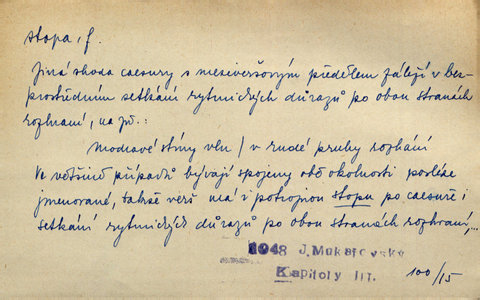 stopa, f.
Jiná shoda caesury s meziveršovým předělem záleží v bez-
prostředním setkání rytmických důrazů po obou stranách
rozhraní, na př.:
Modravé stíny vln / v rudé pruhy rozhání
Ve většině případů bývají spojeny obě okolnosti posléze
jmenované, takže verš má i potrojnou stopu po caesuře i
setkání rytmických důrazů po obou stranách rozhraní,...
1948 J. Mukařovský
Kapitoly III.
100/15